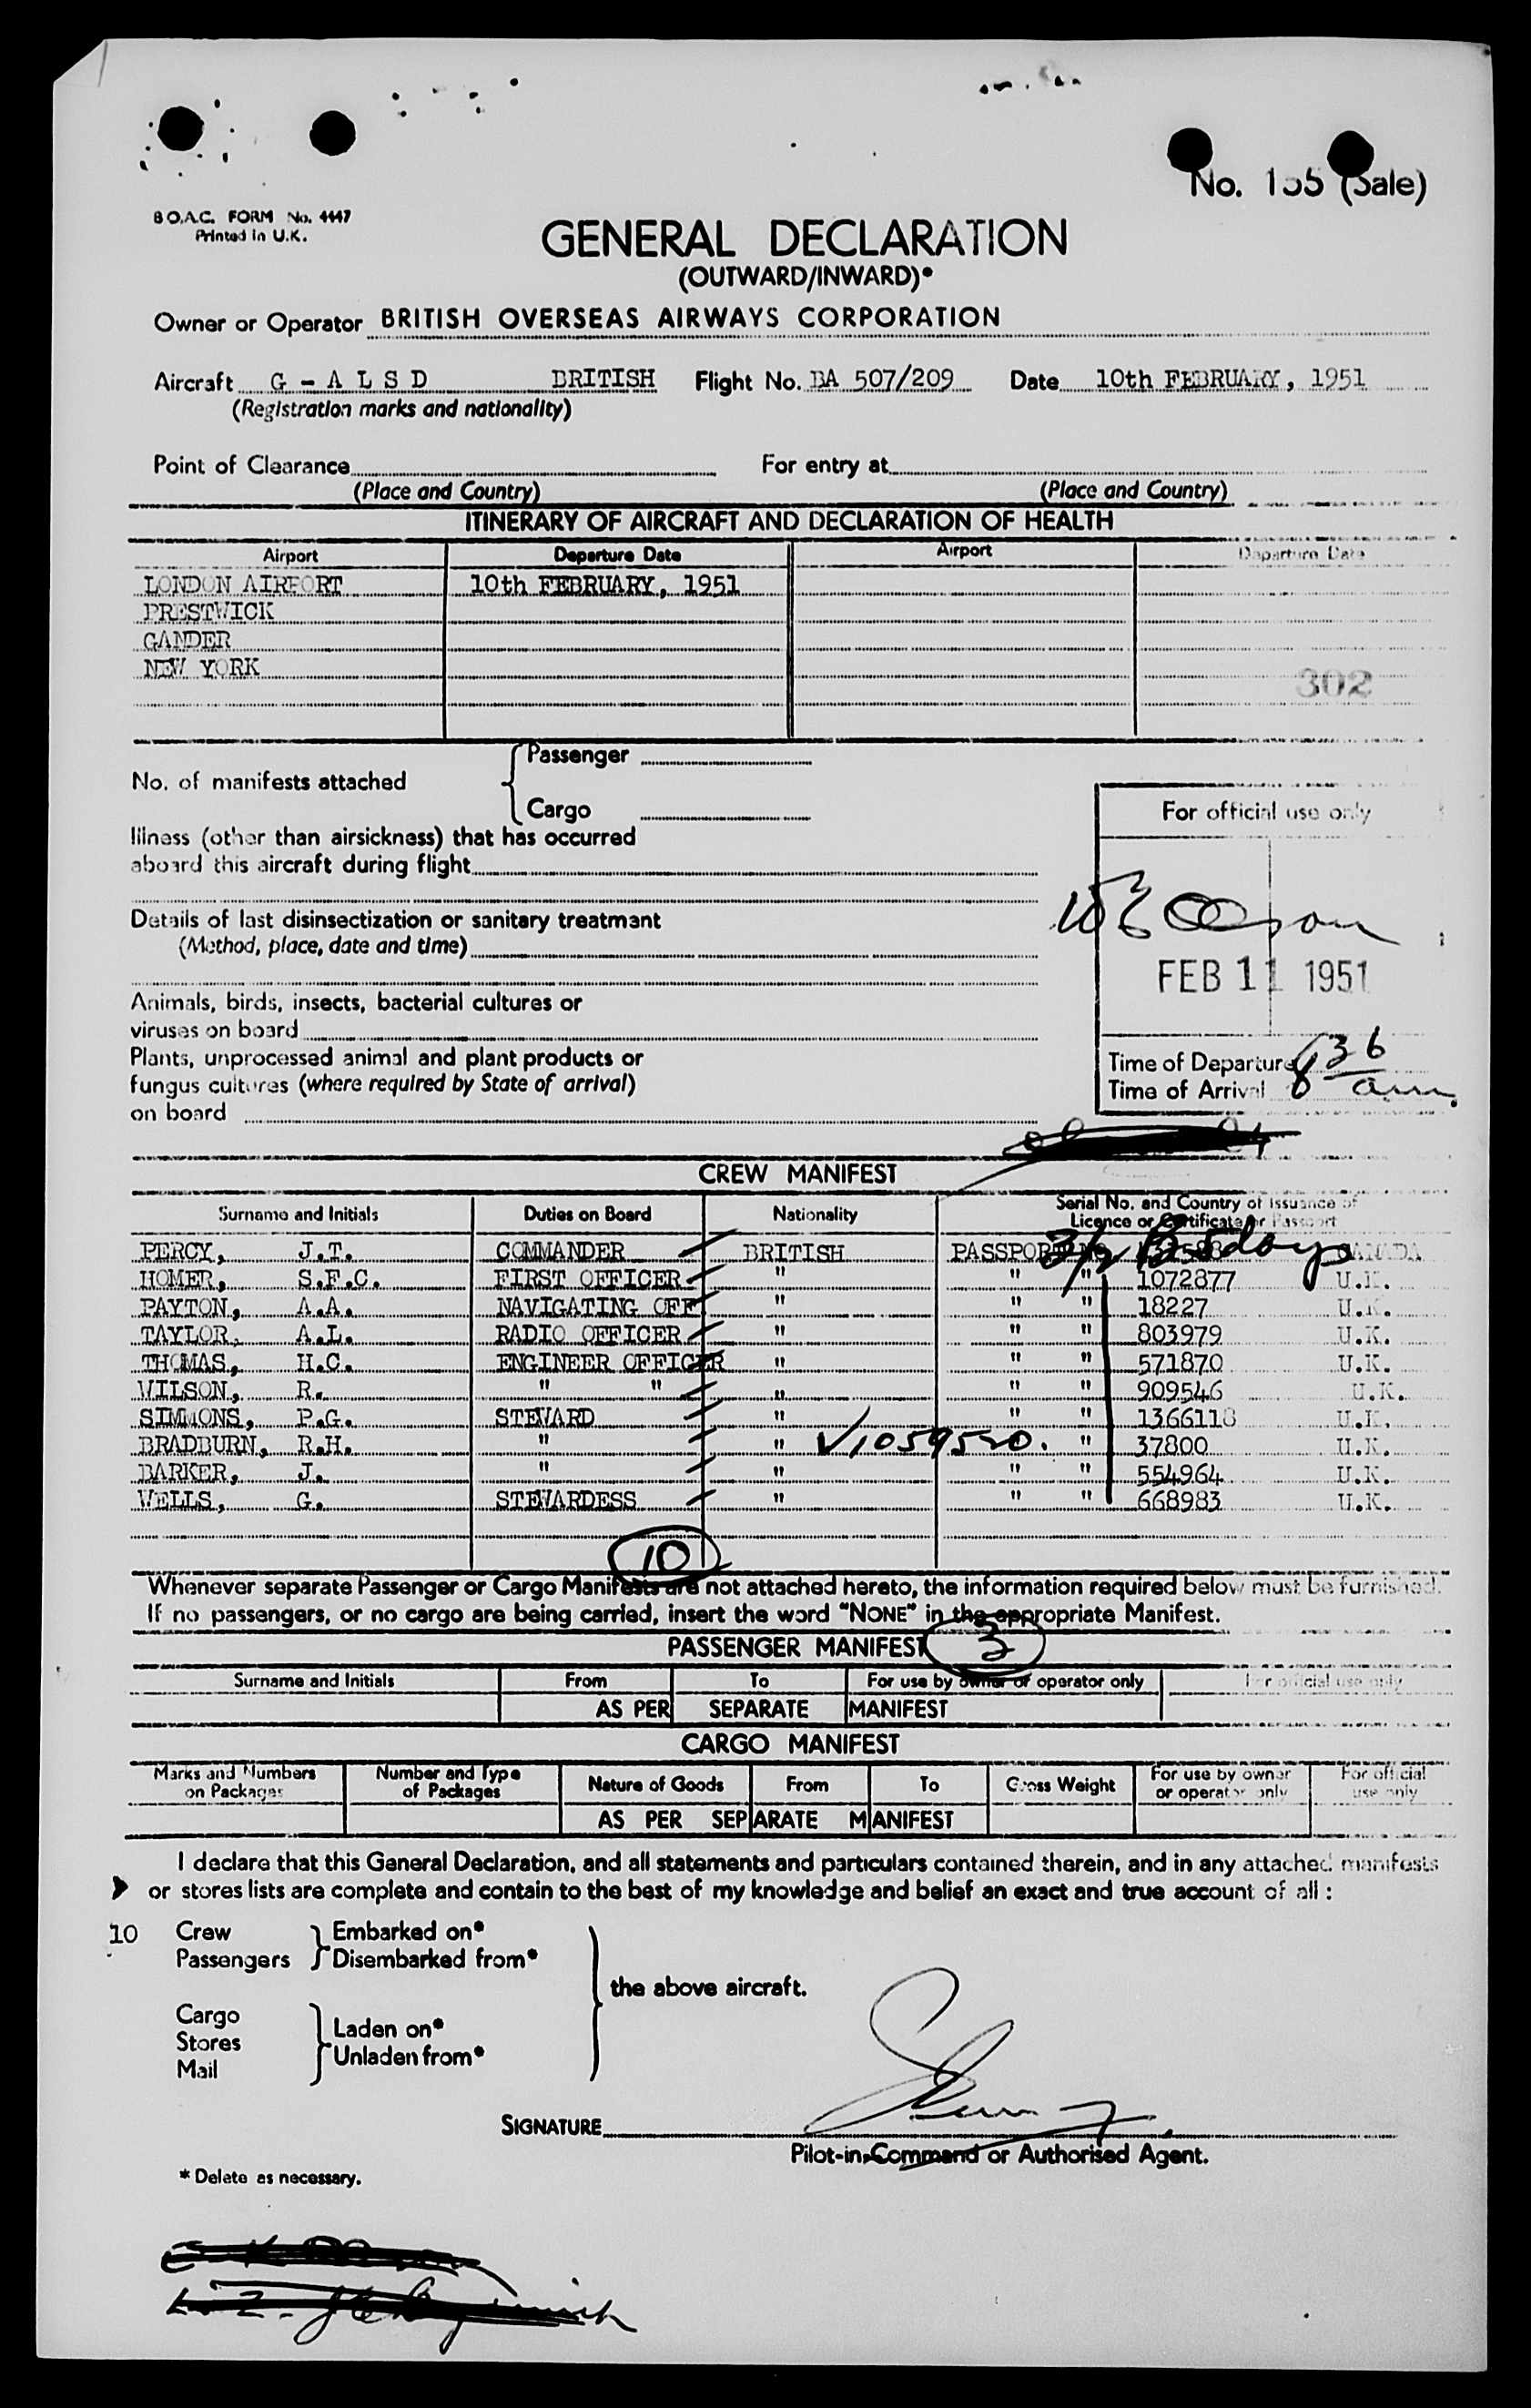 No. 155 (Sale)
B O.A.C. FORM No. 4447
Printed in U.K.
GENERAL DECLARATION
(OUTWARD/INWARD)*
Owner or Operator BRITISH OVERSEAS AIRWAYS CORPORATION
Aircraft G - A L S D BRITISH Flight No. BA 507/209 Date 10th FEBRUARY, 1951
(Registration marks and nationality)
Point of Clearance For entry at
(Place and Country) (Place and Country)
ITINERARY OF AIRCRAFT AND DECLARATION OF HEALTH
Airport Departure Date Airport Departure Date
LONDON AIRPORT 10th FEBRUARY, 1951
PRESTWICK
GANDER
NEW YORK
302
Passenger
No. of manifests attached
Cargo
For official use only
Illness (other than airsickness) that has occurred
aboard this aircraft during flight
Details of last disinsectization or sanitary treatment
(Method, place, date and time)
FEB 11 1951
Animals, birds, insects, bacterial cultures or
viruses on board
Plants, unprocessed animal and plant products or
fungus cultures (where required by State of arrival)
on board
Time of Departure
Time of Arrival 8 36 am.
CREW MANIFEST
Surname and Initials Duties on Board Nationality Serial No. and Country of Issuance of
Licence or Certificate or Passport
PERCY, J.T. COMMANDER BRITISH PASSPORT CANADA
days
HOMER, S.F.C. FIRST OFFICER " " " 1072877 U.K.
PAYTON, A.A. NAVIGATING OFF " " " 18227 U.K.
TAYLOR, A.L. RADIO OFFICER " " " 803979 U.K.
THOMAS, H.C. ENGINEER OFFICER " " " 571870 U.K.
WILSON, R. " " " " " 909546 U.K.
SIMMONS, P.G. STEWARD " " " 1366118 U.K.
BRADBURN, R.H. " " √1059520. " 37800 U.K.
BARKER, J. " " " " 554964 U.K.
WELLS, G. STEWARDESS " " " 668983 U.K.
10
Whenever separate Passenger or Cargo Manifests are not attached hereto, the information required below must be furnished.
If no passengers, or no cargo are being carried, insert the word "NONE" in the appropriate Manifest.
PASSENGER MANIFEST 3
Surname and Initials From To For use by owner or operator only For official use only
AS PER SEPARATE MANIFEST
CARGO MANIFEST
Marks and Numbers on Packages Number and Type of Packages Nature of Goods From To Gross Weight For use by owner or operator only For official use only
AS PER SEPARATE MANIFEST
I declare that this General Declaration, and all statements and particulars contained therein, and in any attached manifests
or stores lists are complete and contain to the best of my knowledge and belief an exact and true account of all :
10 Crew Embarked on*
Passengers Disembarked from*
the above aircraft.
Cargo
Stores Laden on*
Mail Unladen from*
SIGNATURE
Pilot-in-Command or Authorised Agent.
* Delete as necessary.